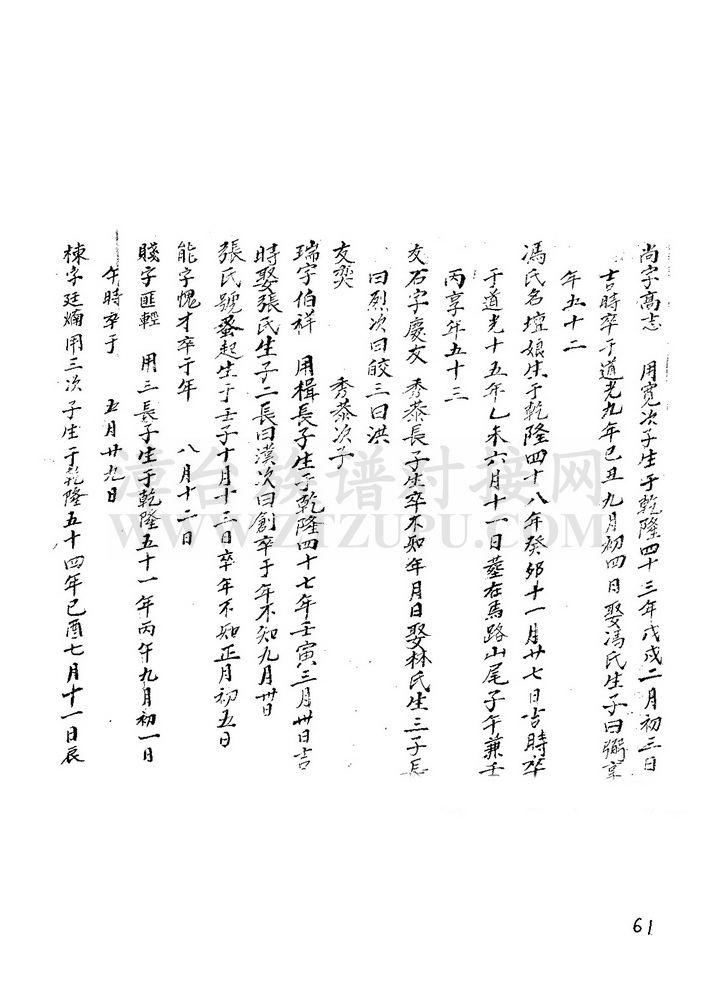 尚字髙志　用寬次子生于乾隆四十三年戊戌二月初三日
吉時卒于道光九年己丑九月初四日娶馮氏生子曰弼享
年五十二
馮氏名壇娘生于乾隆四十八年癸卯十一月廿七日吉時卒
于道光十五年乙未六月十一日塟在馬路山尾子午兼壬
丙享年五十三
友石字慶友　秀恭長子生卒不知年月日娶林氏生三子長
曰烈次曰皎三曰洪
友奕　秀恭次子
瑞字伯祥　用楫長子生于乾隆四十七年壬寅三月卅日吉
時娶張氏生子二長曰漢次曰創卒于年不知九月卅日
張氏號蚤起生于壬子十月十三日卒年不知正月初五日
能字愧才卒于年　八月十二日
賤字匪輕　用三長子生于乾隆五十一年丙午九月初一日
午時卒于　五月廿九日
棟字廷爔用三次子生于乾隆五十四年己酉七月十一日辰
漳台族谱对接网
WWW.ZTZUPU.COM
61